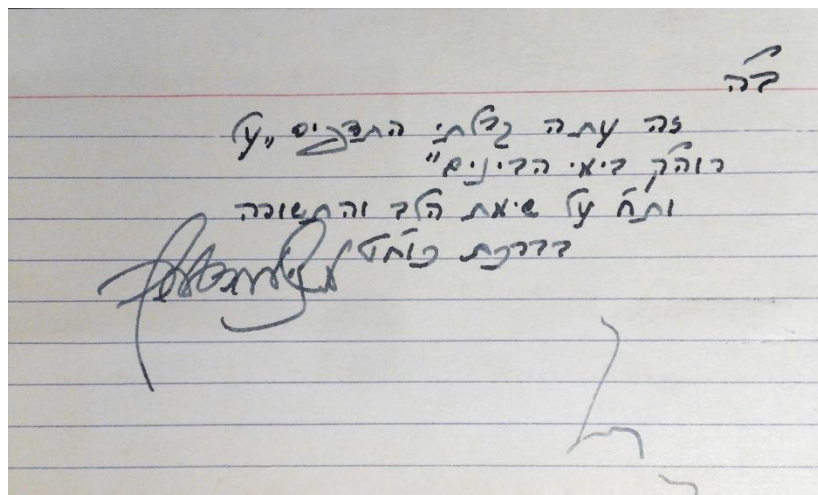 ב"ה
זה עתה קבלתי התדפיס „על
רוה"ק בימי הבינים"
ות"ח על שימת הלב והתשורה
בברכת כוח"ט